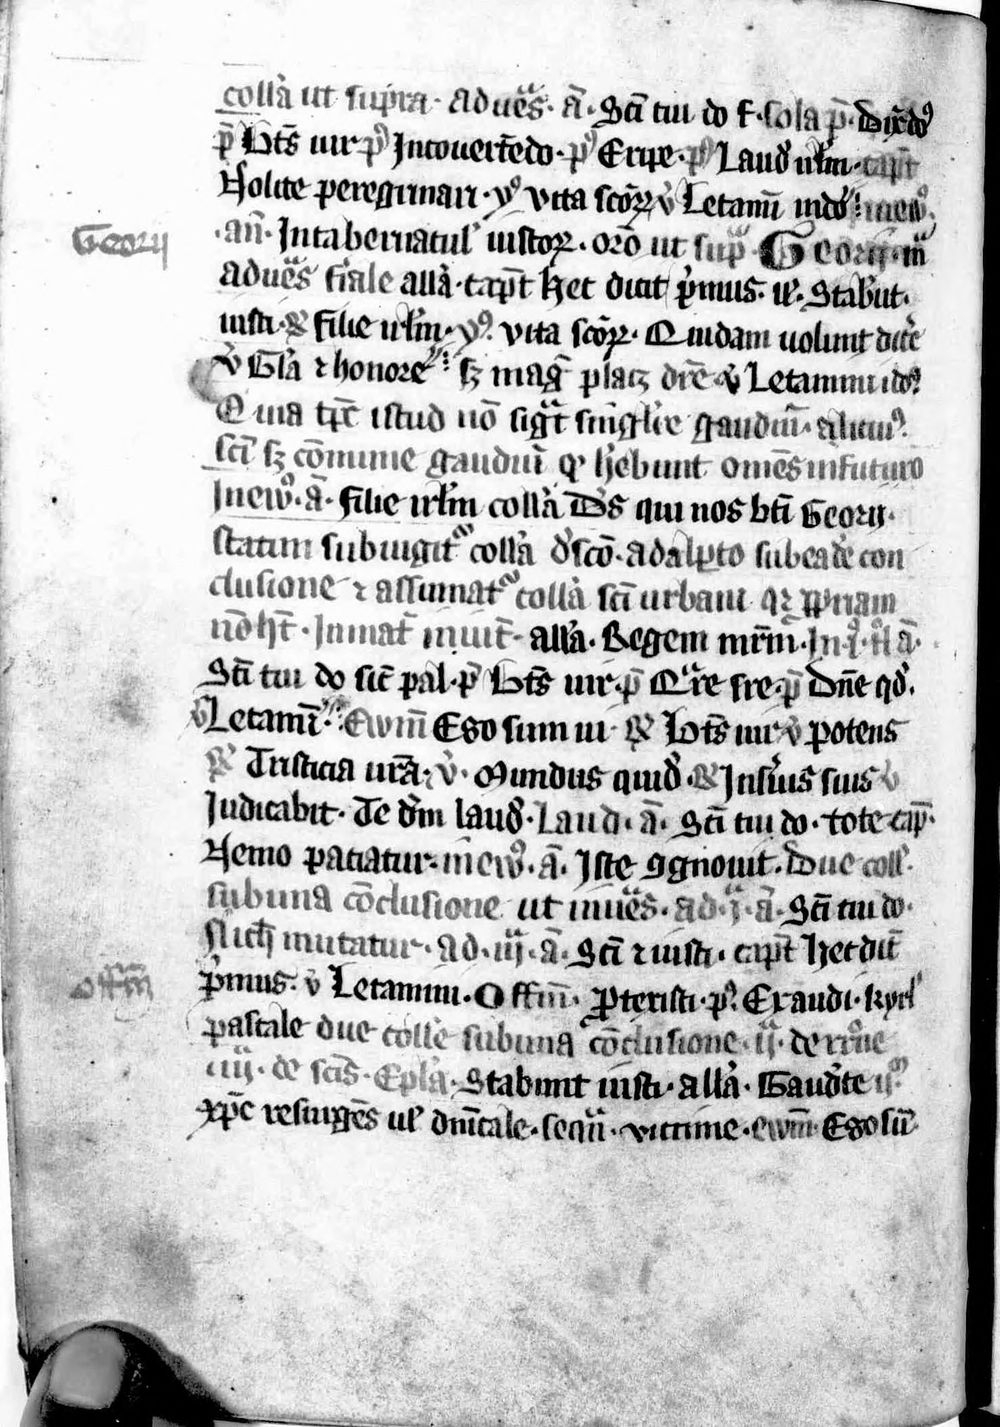 collā ut supra · ad ueᷓs · ā · Scī tui do f · sola p̄ · Dix̄ dꝰ
p̄ Bt̄s uir pꝰ In couertēdo · pꝰ Eripe · pꝰ Laud̕ irlm̄ · capt̄
Nolite peregrinari · yꝰ vita scōꝝ v̕ Letamī in dō · in ewꝰ ·
Georii
· an̄ · In tabernatul̕ iustoꝝ · orō ut supᷓ Georii · mᷓ
ad ueᷓs feriale allā · capt̄ Hec dicit p̕mus · v̕ · Stab̄ut ·
iusti · & Filie irlm̄ · yꝰ · vita scōꝝ · Quidam uolunt dicē
v̕ Glā ⁊ honore · sꝫ magᷓ placꝫ dr̄e v̕ Letamini i dō
Quia tp̄e istud nō sigᷓt singl̕re gaudiū · alicuiꝰ ·
scī sꝫ cōmune gaudiū qd̕ hēbunt omēs in futuro
In ewꝰ · ā · Filie irlm̄ collā Ds̄ qui nos bti Georii ·
statim subiūgit᷑ collā d̕ scō · adalb̄to sub eadē con
clusione ⁊ assumat᷑ collā scī urbani qꝛ ꝓpriam
nō ht̄ · In mat̄ inuit̄ · allā · Regem mr̄m̄ · In · i · n̄ · ā ·
Scī tui do sic̄ pal · p̄ Bt̄s uir · p̄ Qᷓre fre · p̄ Dn̄e qd̕ ·
v̕ Letamī · Ewm̄ Ego sum ui · & Bt̄s uir v̕ potens
& Tristicia ur̄a · v̕ · Mundus quid̕ · & In sūis suis v̕
Iudicabit · Te dm̄ laud̕ · Laud · ā · Scī tui do · tote cap̄ ·
Nemo patiatur · in ewꝰ · ā · Iste ꝯgnouit · Due coll̕ ·
sub una cōclusione ut in ueᷓs · ad · i · ā · Scī tui do ·
n̄ich̄ mutatur · ad · iij · ā · Scī ⁊ iusti · capt̄ Hec dic̄
offm̄
p̕mus · v̕ Letamini · Offm̄ · Ptexisti · pꝰ · Exaudi · kyrl̕
pascale due collē sub una cōclusione · ij · de rr̄one
iij · de scīs · Eplā · Stabunt iusti · allā · Gaud̄te iiꝰ
xp̄c resurgēs ul̕ dn̄icale · sequᷓ · victime · ewm̄ · Ego sū